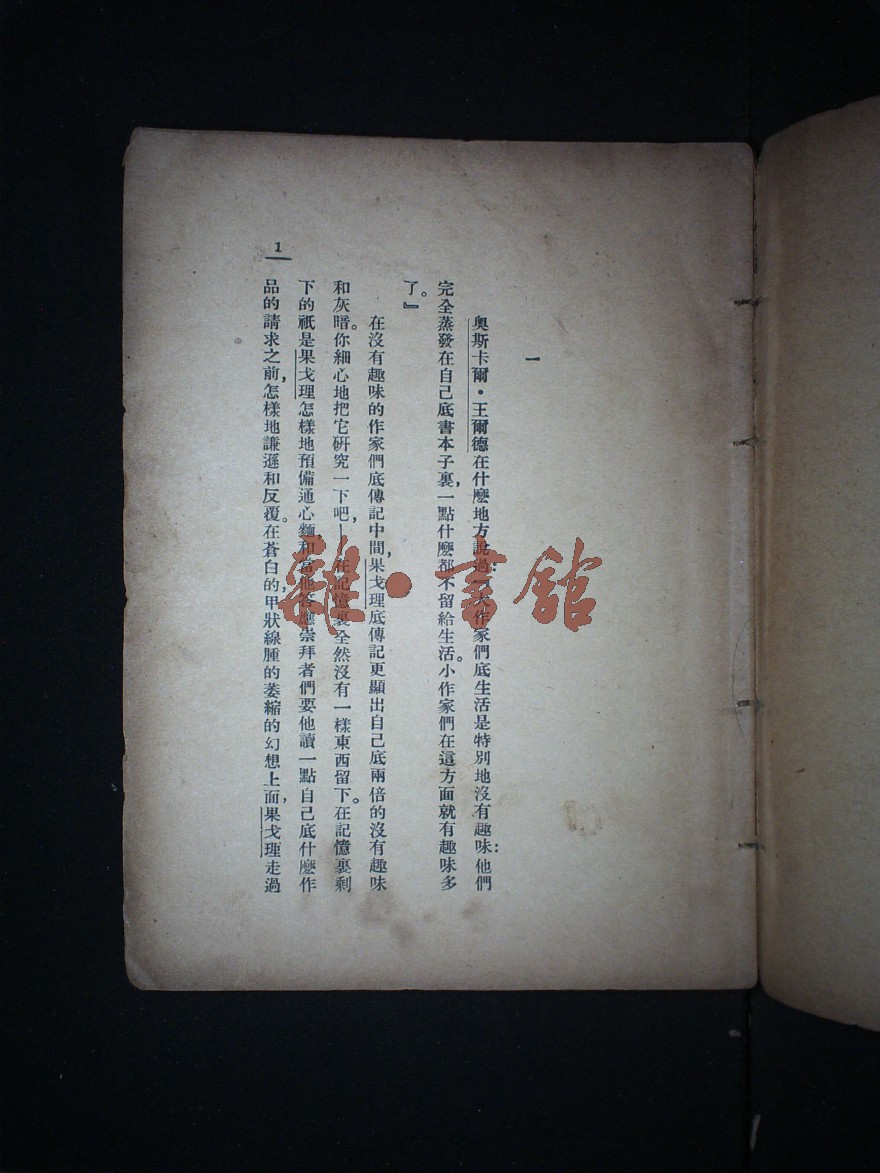 一
奧斯卡爾·王爾德在什麽地方說過:『大作家們底生活是特別地沒有趣味:他們
完全蒸發在自己底書本子裏,一點什麽都不留給生活。小作家們在這方面就有趣味多
了。』
在沒有趣味的作家們底傳記中間,果戈理底傳記更顯出自己底兩倍的沒有趣味
和灰暗。你細心地把它研究一下吧,——在記憶裏全然沒有一樣東西留下。在記憶裏剩
下的祇是果戈理怎樣地預備通心麵和當他答應崇拜者們要他讀一點自己底什麽作
品的請求之前,怎樣地謙遜和反覆。在蒼白的,甲狀線腫的萎縮的幻想上面,果戈理走過
1
雜·書館